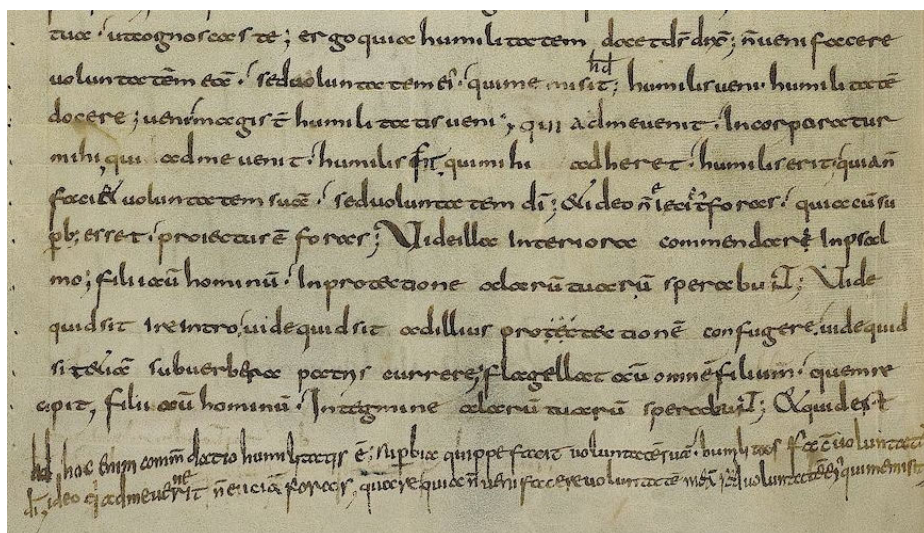 tuae · ut cognoscas te; ergo quia humilitatem docet dn̄s dn̄s; n̄ veni facere
voluntatē meā · sed voluntatem ei' · qui me misit; humilis veni · humilitatē
hd
docere; veni magist̄ humilitatis veni; qui ad me venit · Incorporatur
mihi, qui ad me venit · humilis fit, qui mihi adheret · humilis erit, quia n̄
facit voluntatem suā · sed voluntatem dī; & ideo n̄ foras · quia cū su
pb; esset · proiectus ē foras; Vide illa Interiora commendari Inpsal
mo; filii aū hominū · Inprotectione alarū tuarū sperabu; Vide
quid sit Ire Intro, vide quid sit ad illius protectionē confugere, vide quid
sit etiā sub verbera patris currere; flagellat aū omnē filium · quem re
cipit, filii aū hominū · Integmine alarū tuarū sperabu; & quid est
hd hoc enim ē; supbia quippe facit voluntatē suā · humilitas facit voluntatē
dī, ideo q' ad me venerit n̄ eiciā foras, quare quia n̄ veni facere voluntatē meā sed voluntatē ei' qui me misit